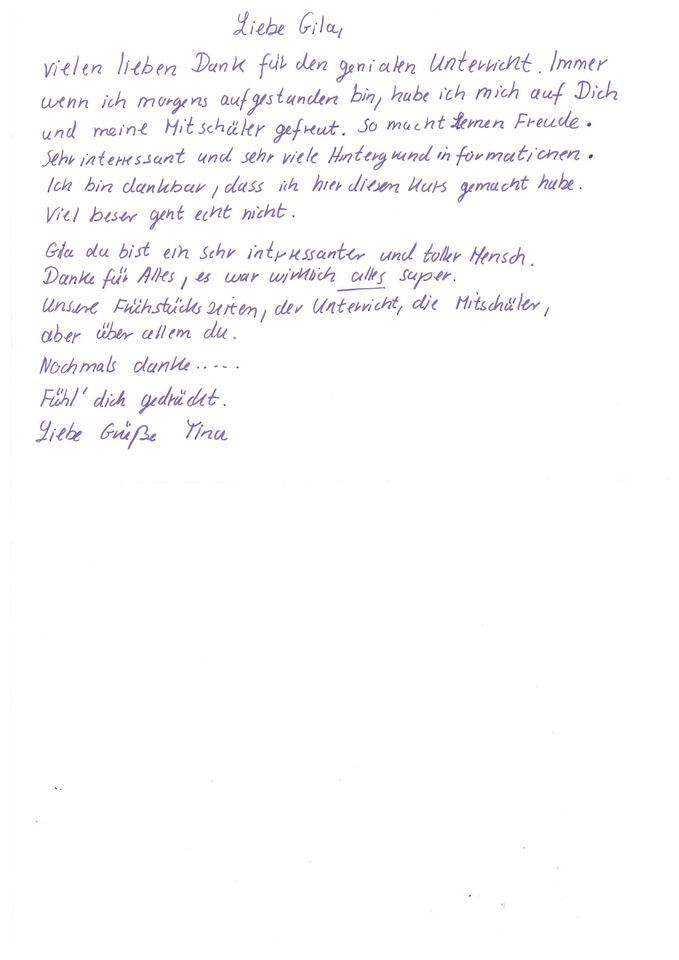 Liebe Gila,
vielen lieben Dank für den genialen Unterricht. Immer
wenn ich morgens aufgestanden bin, habe ich mich auf Dich
und meine Mitschüler gefreut. So macht Lernen Freude.
Sehr interessant und sehr viele Hintergrundinformationen.
Ich bin dankbar, dass ich hier diesen Kurs gemacht habe.
Viel beser geht echt nicht.
Gila du bist ein sehr intressanter und toller Mensch.
Danke für Alles, es war wirklich alles super.
Unsere Frühstückszeiten, der Unterricht, die Mitschüler,
aber über allem du.
Nochmals danke.....
Fühl' dich gedrückt.
Liebe Grüße Tina